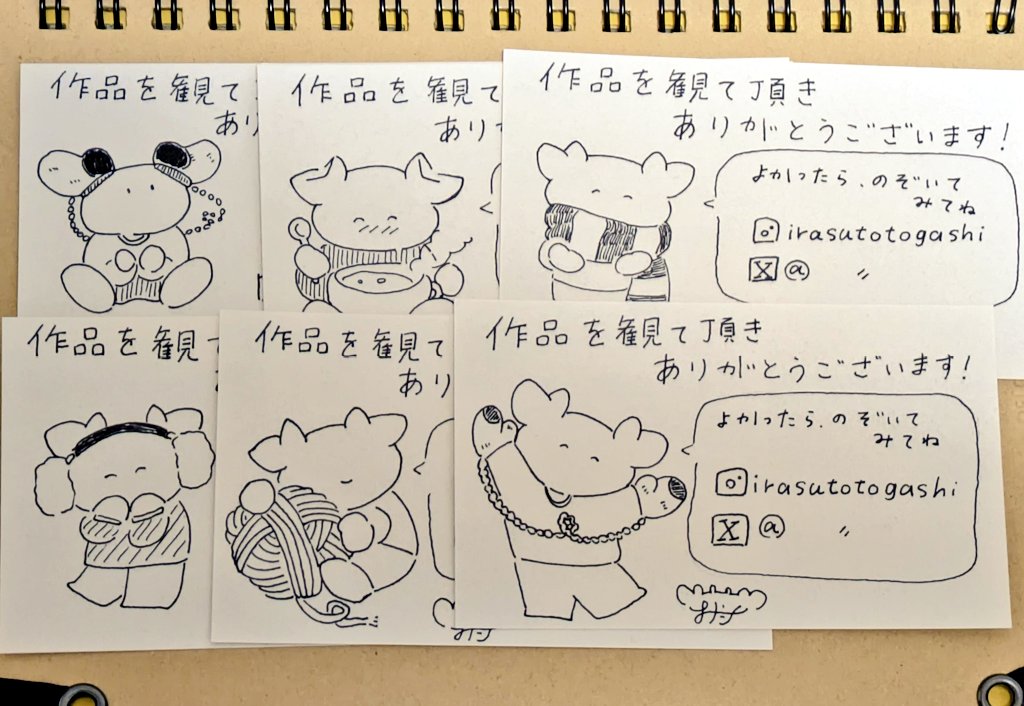 作品を観て
あり
作品を観て
あり
作品を観て頂き
ありがとうございます!
よかったら、のぞいて
みてね
irasutotogashi
X @ 〃
作品を観
作品を観て
あり
作品を観て頂き
ありがとうございます!
よかったら、のぞいて
みてね
irasutotogashi
X @ 〃